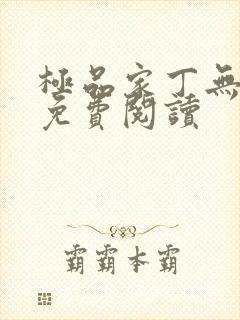 極品家丁無
免費閱讀
霸霸本霸